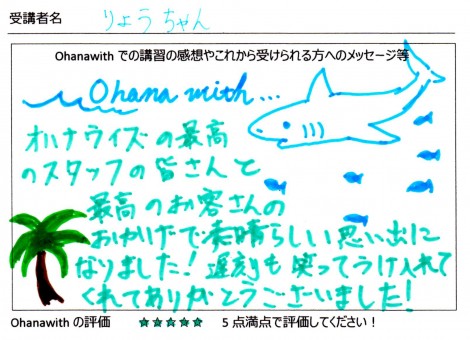 受講者名 りょうちゃん
Ohanawith での講習の感想やこれから受けられる方へのメッセージ等
Ohana with...
オハナライズの最高
のスタッフの皆さんと
最高のお客さんの
おかげで素晴らしい思い出に
なりました！遅刻も笑ってうけ入れて
くれてありがとうございました！
Ohanawith の評価 ★★★★★ 5 点満点で評価してください！